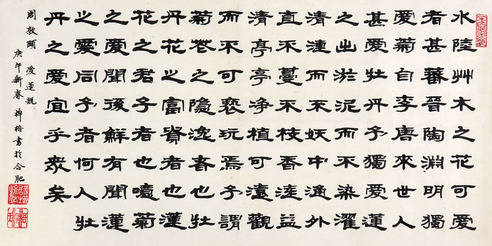 水陸艸木之花可愛
者甚蕃晉陶淵明獨
愛菊自李唐來世人
甚愛牡丹予獨愛蓮
之出淤泥而不染濯
清漣而不妖中通外
直不蔓不枝香遠益
清亭亭淨植可遠觀
而不可褻玩焉予謂
菊花之隱逸者也牡
丹花之富貴者也蓮
花之君子者也噫菊
之愛陶後鮮有聞蓮
之愛同予者何人牡
丹之愛宜乎衆矣
周敦頤 愛蓮說
庚午新春 書於合肥